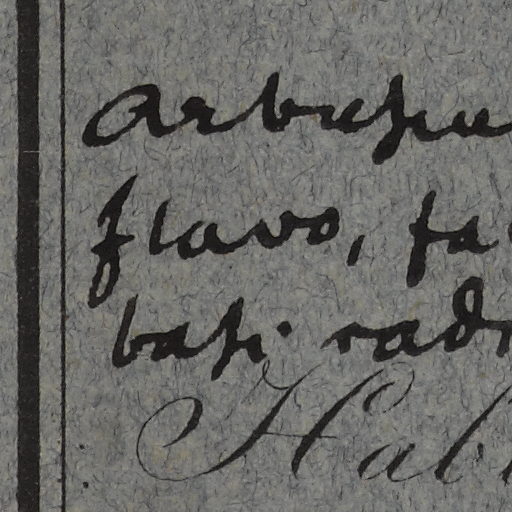 Arbuscu
flavo, fa
basi rad
Hab